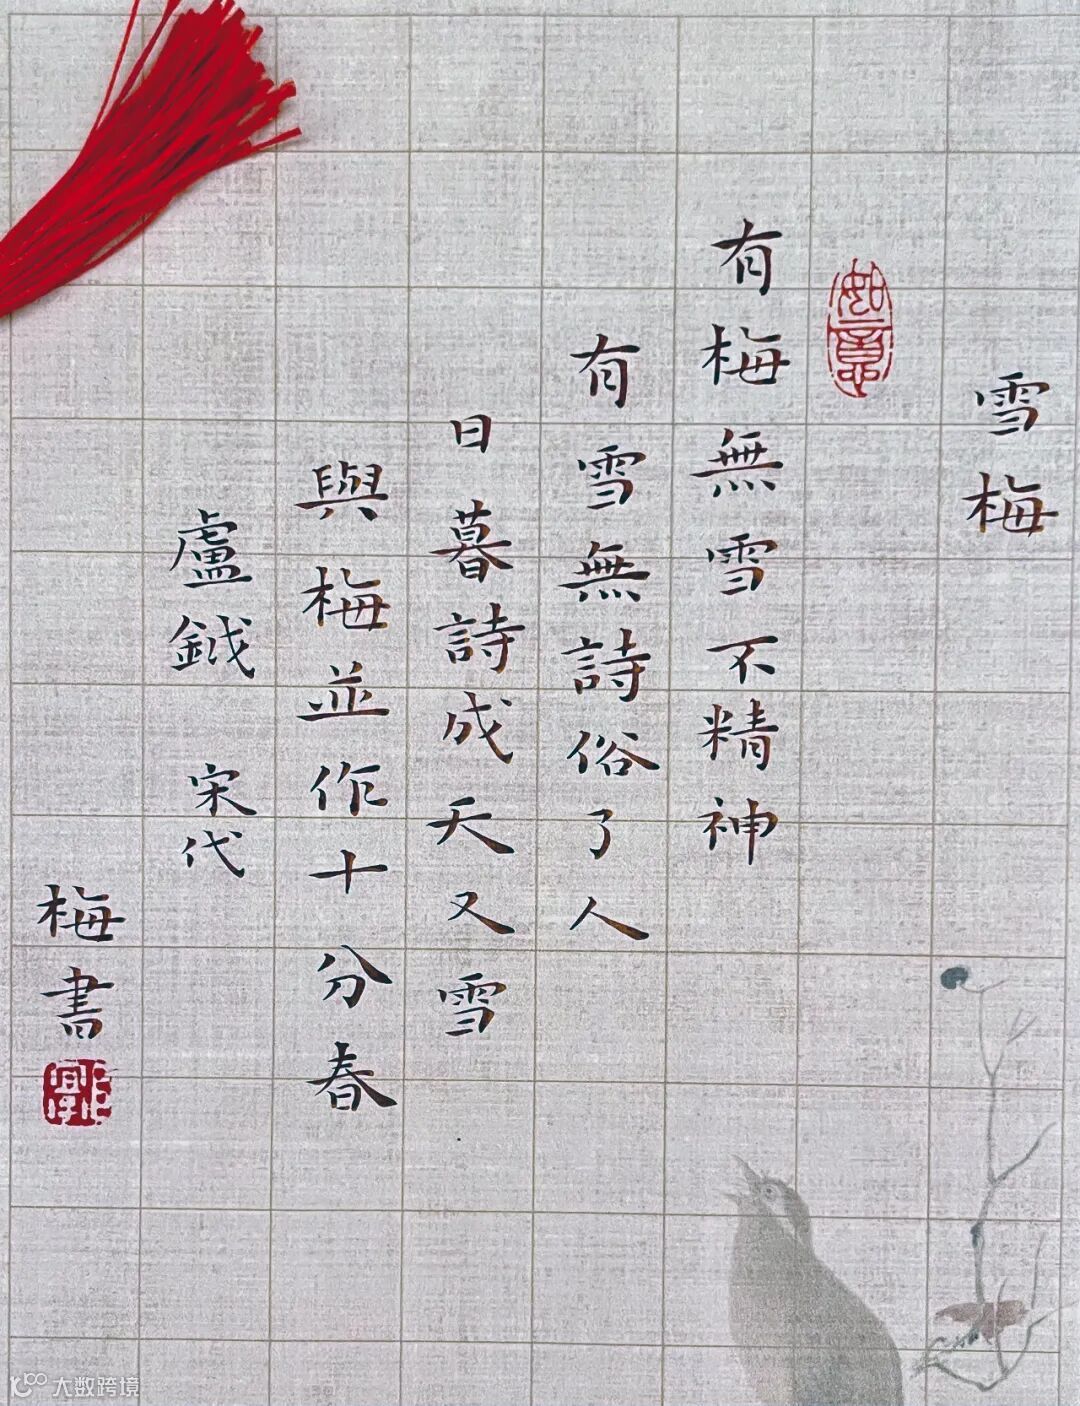 雪梅
如意
有梅無雪不精神
有雪無詩俗了人
日暮詩成天又雪
與梅並作十分春
盧鉞 宋代
梅書
大数跨境